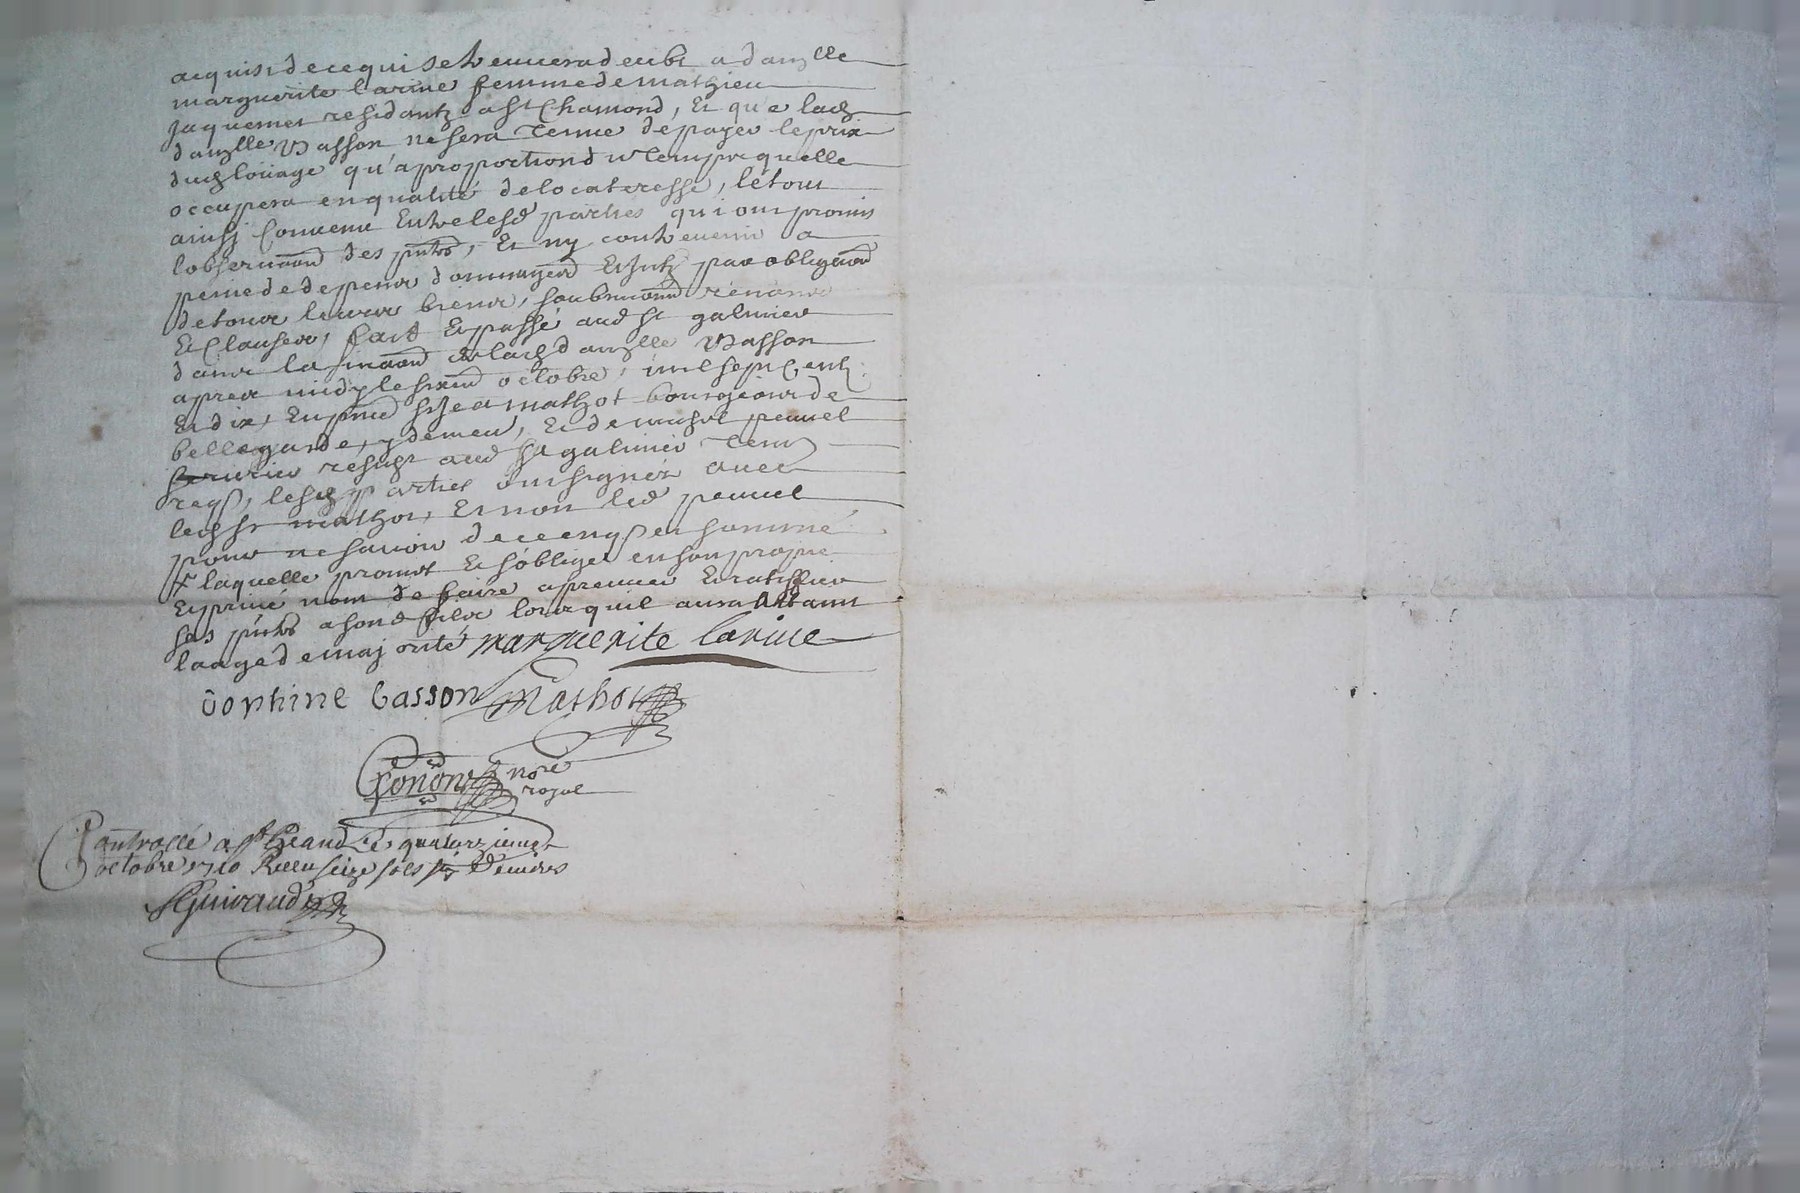 acquis, de ce qui se trouvera deub a damlle
marguerite larive femme de mathieu
Jaquemet residantz a st Chamond, Et que lad
damlle Basson ne sera tenue de payer le prix
dud loüage qu'a proportiond u temps quelle
occupera en qualité de locateresse, le tout
ainsj Convenu Entre lesd parties qui ont promis
lobservaond des pnts, Et ny contrevenir a
peine de despens dommages Et Intz par obligaond
de tous leurs biens, soubmiond renonce
Et Clauses, fait Et passé aud st galmier
dans la maond de lad damlle Basson
apres midy le sixme octobre, mil sept Centz
Et dix, En pnce sr Jea mathot bourgeois de
bellegarde, y demeu, Et de michel peuvel
serrurier resid aud st galmier tesm
reqs, lesd parties ont signéz avec
led sr mathot, Et non led peuvel
pour ne savoir de ce enqs et sommé
+ laquelle promet Et s'oblige en son propre
Et privé nom de faire aprouver Et ratiffier
ses pnts a sond filz lors quil aura attaint
laage de majorité marguerite larive
dophine basson Mathot
Ponons nore
royal
Controllé a st heand le quatorzieme
octobre 1710 Receu seize sols six deniers
SGuiraud